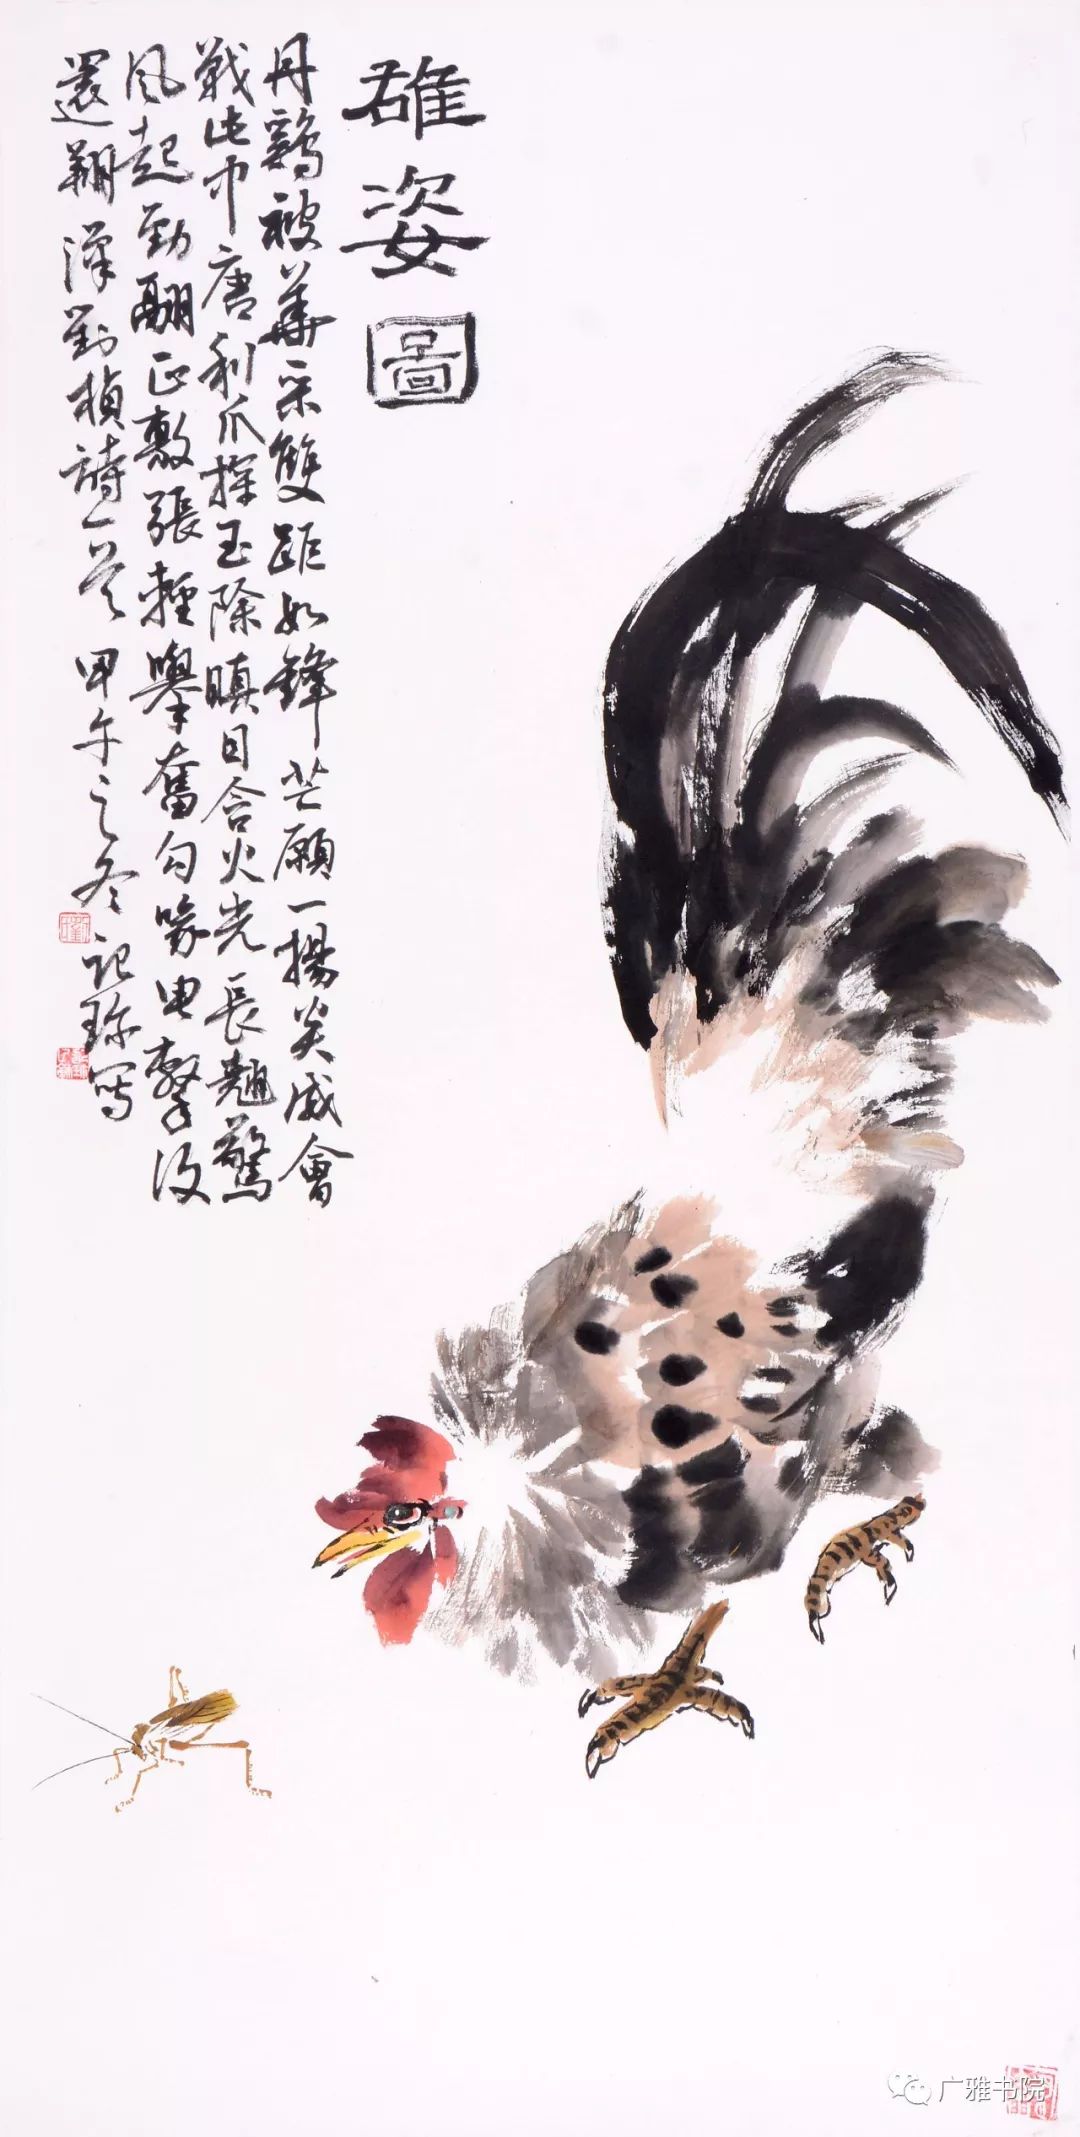 雄姿圖
丹鷄被華采雙距如鋒芒願一揚炎威會
戰此中唐利爪探玉除瞋目含火光長翹驚
風起勁翮正敷張輕舉奮勾喙电擊復
還翔漢劉楨詩一首甲午之冬記珎寫
广雅书院